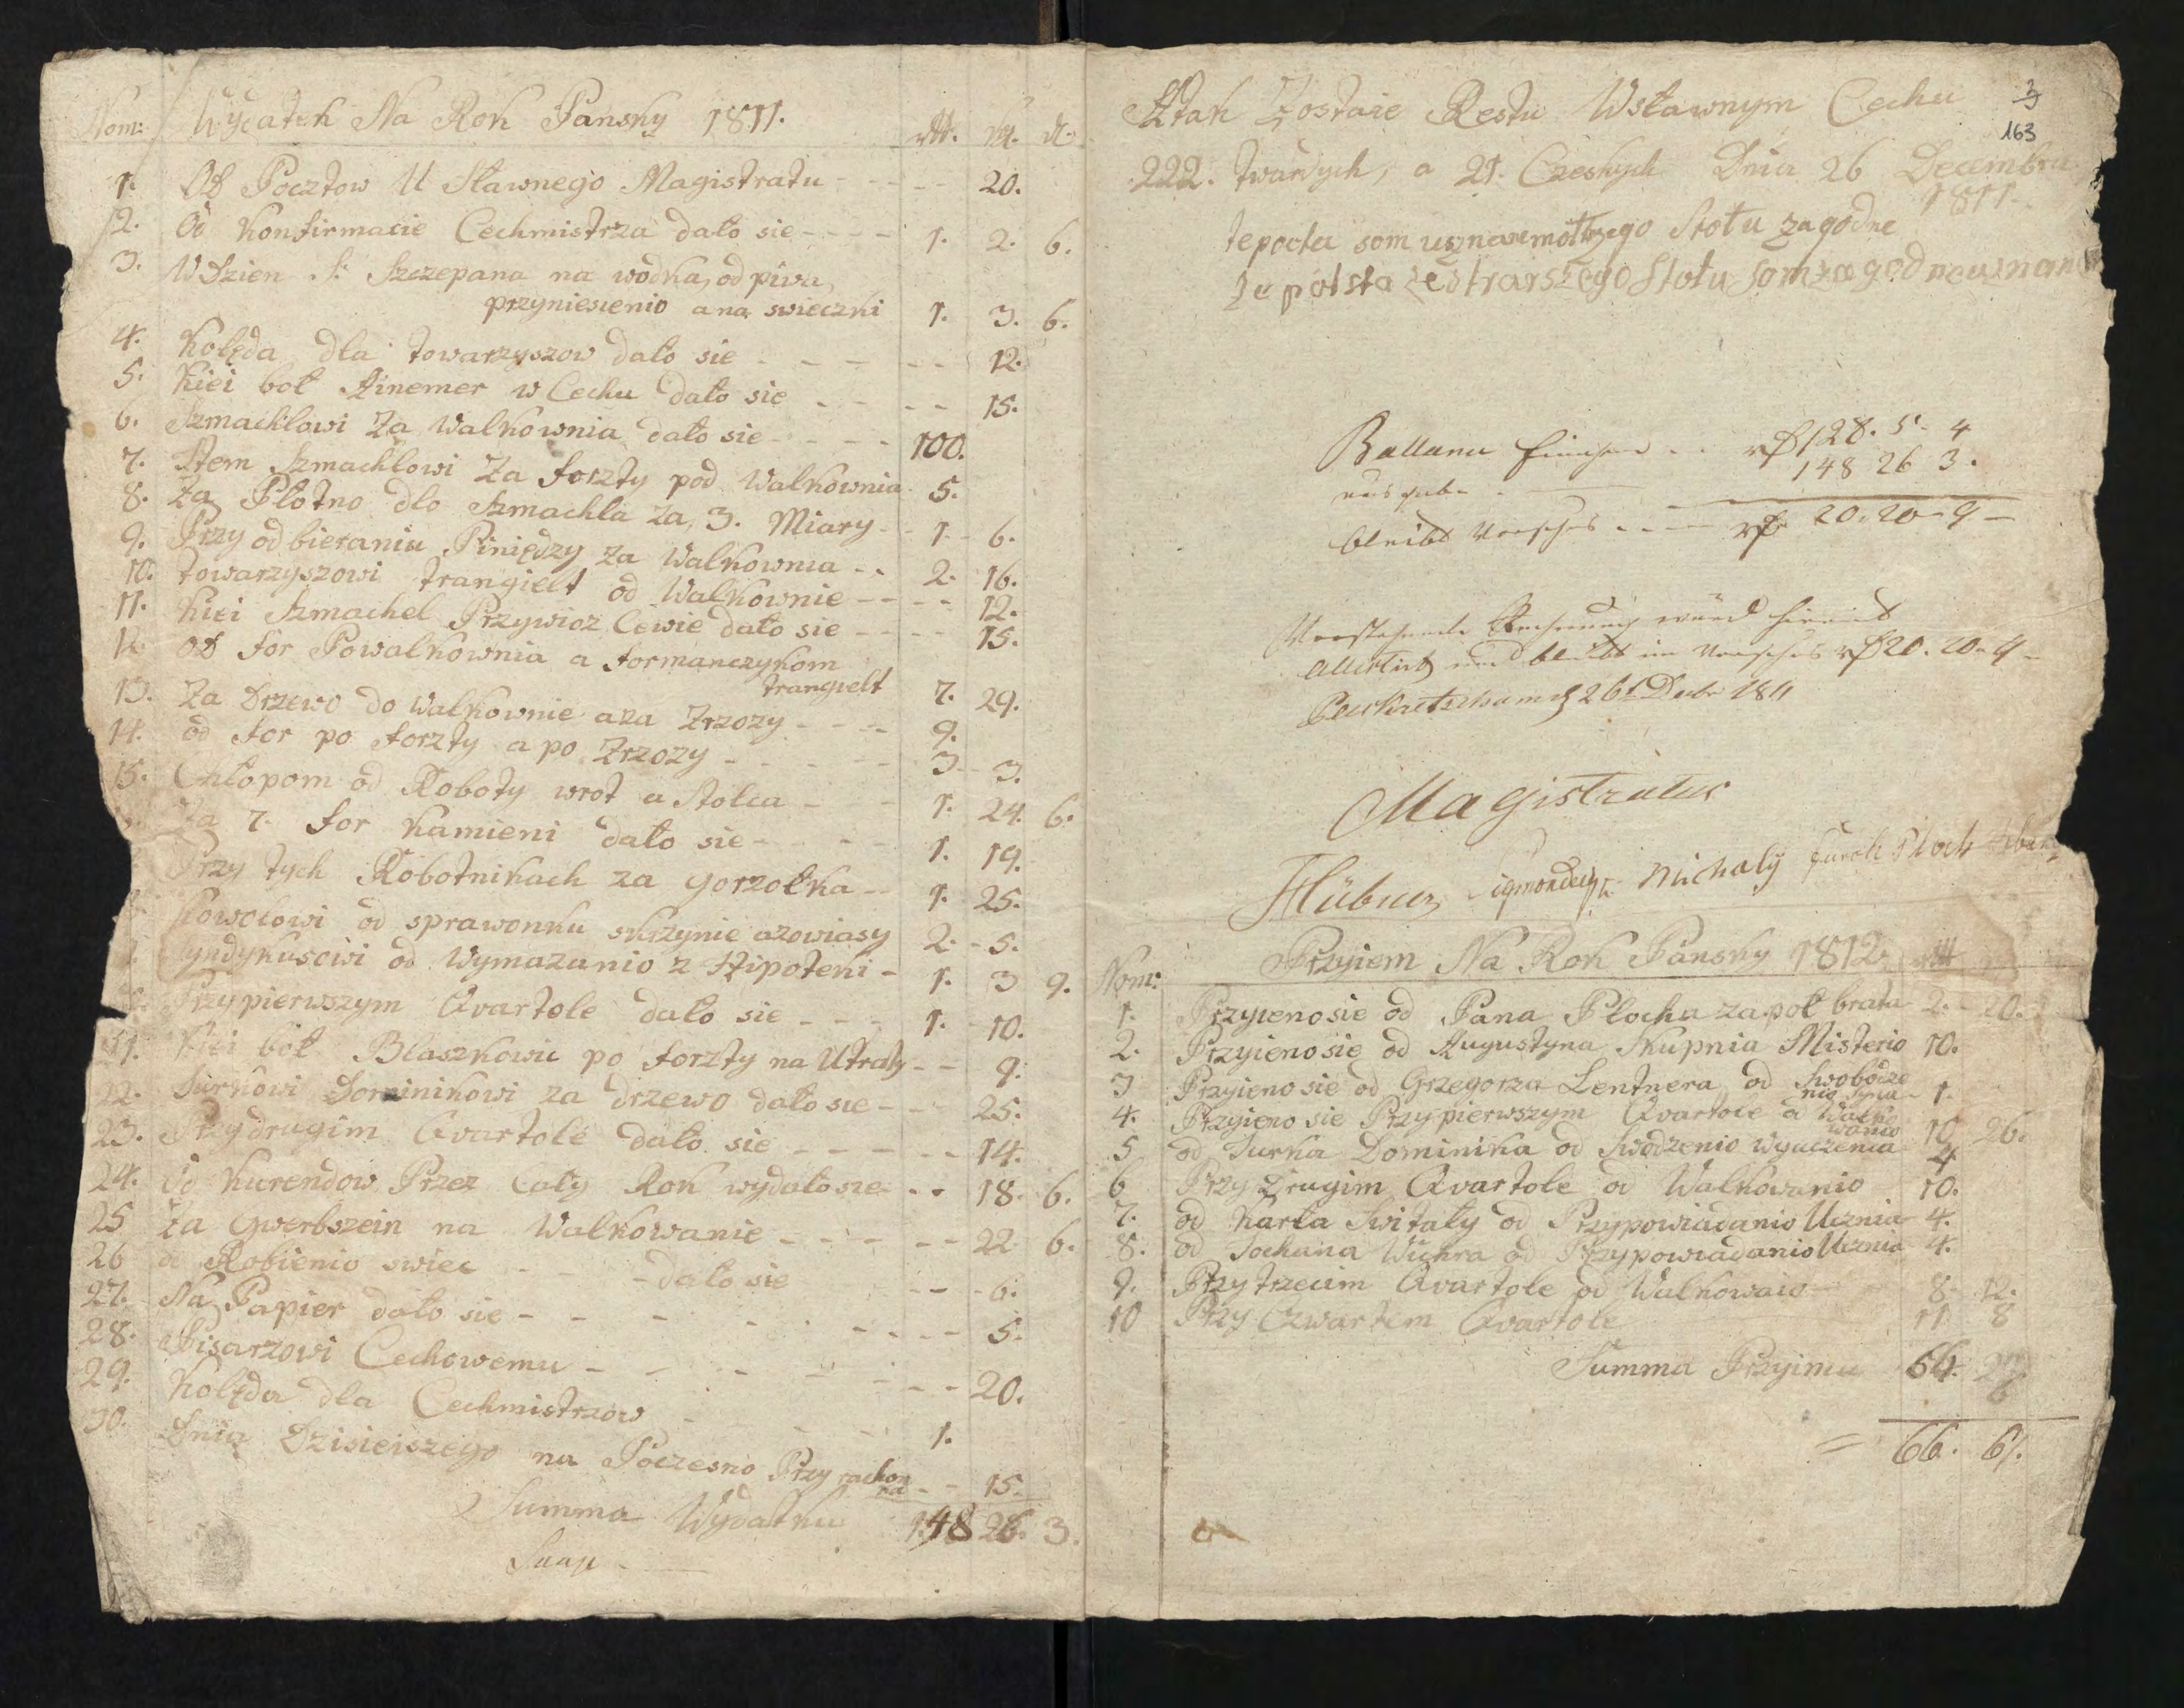 Nom: Wydatek Na Rok Pansky 1811. rtl. czk. d.
1. Od Pocztow U Sławnego Magistratu - - - - 20.
2. Od Konfirmacie Cechmistrza dało sie - - - - 1. 2. 6.
3. W Dzien S: Szczepana na wodka, od piwa,
przyniesienio a na swieczki 1. 3. 6.
4. Kolęda dla towarzyszow dało sie - - - - - 12.
5. Kiei boł Ainemer w Cechu dało sie - - - - 15.
6. Szmachlowi Za Walkownia dało sie - - - - 100.
7. Item Szmachlowi Za forzty pod Walkownia 5.
8. Za Płotno dlo Szmachla za 3. Miary - - 1. - 6.
9. Przy odbieraniu Piniędzy Za Walkownia - - 2. 16.
10. towarzyszowi trangielt od Walkownie - - - - 12.
11. Kiei Szmachel Przywioz Cewie dało sie - - - - 15.
12. Od for Powalkownia a formanczykom
trangielt 7. 29.
13. Za Drzewo do Walkownie a za Zrzozy - - - - 9.
14. od for po forzty a po Zrzozy - - - - - 3 - 3.
15. Chłopom od Roboty wrot a Stolca - - 1. 24. 6.
Za 7. for Kamieni dało sie - - - 1. 19.
Przy tych Robotnikach za gorzołka - - 1. 25.
Kowolowi od sprawonku skrzynie a zowiasy 2. - 5.
Syndykusowi od Wymazanio z Hipoteki - 1. 3 9.
Przy pierwszym Qvartole dało sie - - - 1. - 10.
21. Kiei boł Blaszkowic po forzty na Utraty - - 9.
22. Jurkowi Dominikowi za drzewo dało sie - - - 25.
23. Przy drugim Qvartole dało sie - - - - - 14.
24. Od Kurendow Przez Cały Rok wydało sie - - 18. 6.
25 Za Gwerbszein na Walkowanie - - - - - 22 6.
26 od Robienio swiec - - - dało sie - - - 6.
27. Na Papier dało sie - - - - - - - - 5.
28. Pisarzowi Cechowemu - - - - - - - 20.
29. Kolęda dla Cechmistrzow - - - - 1.
30. Dnia Dzisieiszego na Poczesno Przy rachon
na - - 15.
Summa Wydatku 148 26. 3.
3
163
A tak Zostaie Restu Wsławnym Cechu
222. twardych, a 21. Czeskych Dnia 26 Decembra
1811.
Ballanu Einnahme - - rth 128. 5. 4
ausgabe - 148 26 3.
bleibt Vorschus - - - rth 20. 20 - 9 -
Vorstehende Rechnung wurd hiermit
und bleibt im Vorschus rth 20. 20. 9 -
Peiskretscham d 26t Decbr 1811
Magistratus
Hübner Michaly
Nom: Przyiem Na Rok Pansky 1812. rtl
1. Przyieno sie od Pana Płocha za poł brata 2. - 20.
2. Przyieno sie od Augustyna Skupnia Misterio 10.
3 Przyieno sie od Grzegorza Lentnera od Swobodze
nio Syna - 1.
4. Przyieno sie Przy pierwszym Qvartole a Walko
wanio 10 26.
5 od Jurka Dominika od Swodzenio wyuczenia 4
6 Przy Drugim Qvartole od Walkowanio 10.
7. od Karla Switały od Przypowiadanio Ucznia 4.
8. od Jochana Wichra od Przypowiadanio Ucznia 4.
9. Przy trzecim Qvartole od Walkowaio 8 - 12.
10 Przy Czwartem Qvartole 11 8
Summa Przyimu 64.
= 66. 6.